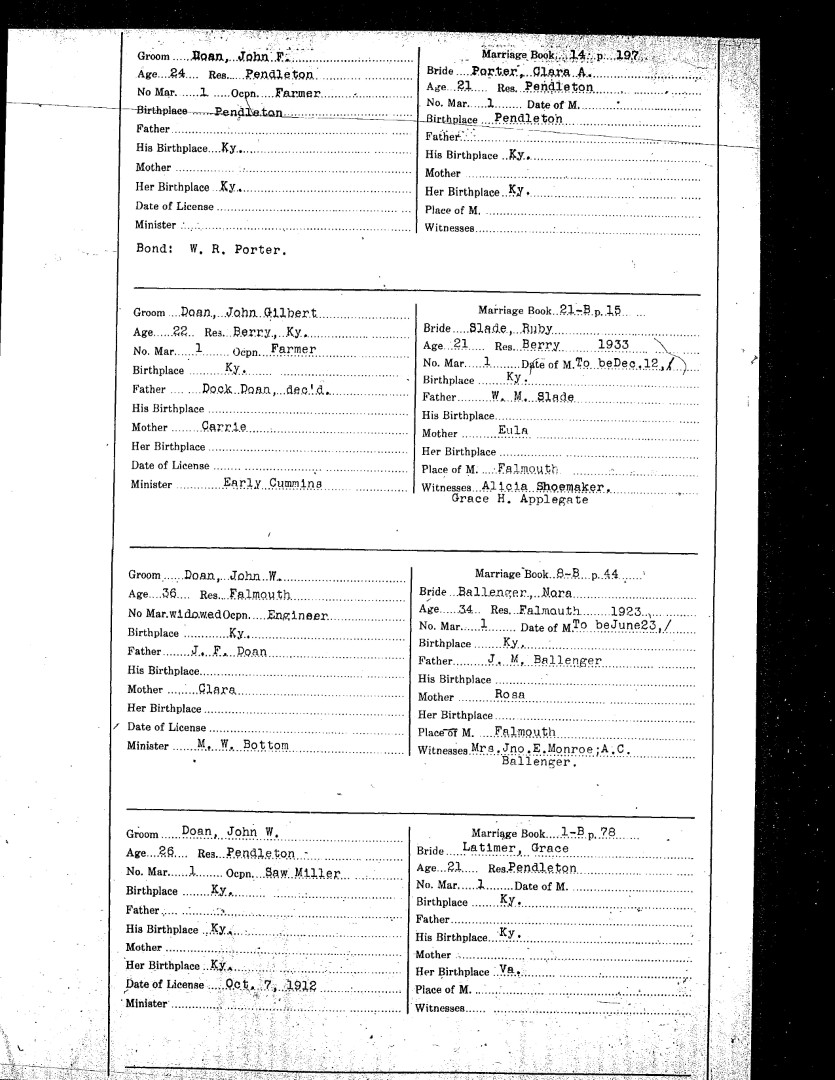 Groom Doan, John F.
Age 24 Res. Pendleton
No Mar. 1 Ocpn. Farmer
Birthplace Pendleton
Father
His Birthplace Ky.
Mother
Her Birthplace Ky.
Date of License
Minister
Bond: W. R. Porter.
Marriage Book 14 p. 197
Bride Porter, Clara A.
Age 21 Res. Pendleton
No. Mar. 1 Date of M.
Birthplace Pendleton
Father
His Birthplace Ky.
Mother
Her Birthplace Ky.
Place of M.
Witnesses
Groom Doan, John Gilbert
Age 22 Res. Berry, Ky.
No. Mar. 1 Ocpn. Farmer
Birthplace Ky.
Father Dock Doan, dec'd.
His Birthplace
Mother Carrie
Her Birthplace
Date of License
Minister Early Cummins
Marriage Book 21-B p. 15
Bride Slade, Ruby
Age 21 Res. Berry 1933
No. Mar. 1 Date of M. To beDec.12,/
Birthplace Ky.
Father W. M. Slade
His Birthplace
Mother Eula
Her Birthplace
Place of M. Falmouth
Witnesses Alicia Shoemaker.
Grace H. Applegate
Groom Doan, John W.
Age 36 Res. Falmouth
No Mar. widowed Ocpn. Engineer
Birthplace Ky.
Father J. F. Doan
His Birthplace
Mother Clara
Her Birthplace
Date of License
Minister M. W. Bottom
Marriage Book 8-B p. 44
Bride Ballenger, Nora
Age 34 Res. Falmouth 1923
No. Mar. 1 Date of M. To beJune23,/
Birthplace Ky.
Father J. M. Ballenger
His Birthplace
Mother Rosa
Her Birthplace
Place of M. Falmouth
Witnesses Mrs.Jno.E.Monroe;A.C.
Ballenger.
Groom Doan, John W.
Age 26 Res. Pendleton
No. Mar. 1 Ocpn. Saw Miller
Birthplace Ky.
Father
His Birthplace Ky.
Mother
Her Birthplace Ky.
Date of License Oct. 7, 1912
Minister
Marriage Book 1-B p. 78
Bride Latimer, Grace
Age 21 Res. Pendleton
No. Mar. 1 Date of M.
Birthplace Ky.
Father
His Birthplace Ky.
Mother
Her Birthplace Va.
Place of M.
Witnesses